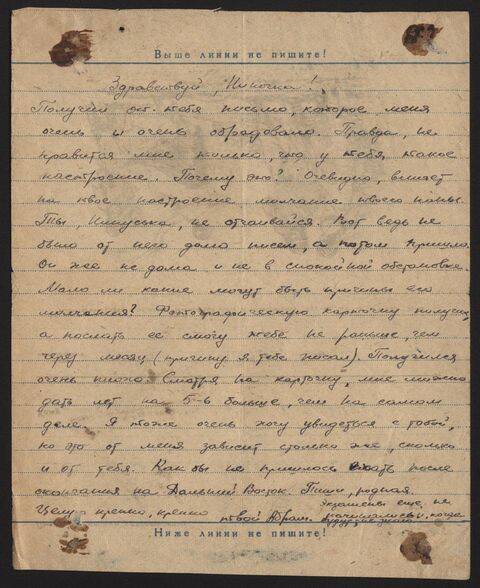 Выше линии не пишите!
Здравствуй, Ниночка!
Получил от тебя письмо, которое меня
очень и очень обрадовало. Правда, не
нравится мне только, что у тебя такое
настроение. Почему это? Очевидно, влияет
на твое настроение молчание твоего папы.
Ты, Нинуська, не отчаивайся. Вот ведь не
было от него долго писем, а потом пришло.
Он же не дома и не в спокойной обстановке.
Мало ли какие могут быть причины его
молчания? Фотографическую карточку получил,
а послать ее смогу тебе не раньше, чем
через месяц (причину я тебе писал). Получился
очень Смотря на карточку, мне можно
дать лет на 5-6 больше, чем на самом
деле. Я тоже очень хочу увидеться с тобой,
но это от меня зависит столько же, сколько
и от тебя. Как бы не пришлось ехать после
окончания на Дальний Восток. Пиши, родная.
Целую крепко, крепко твой Абрам.
Экзамены еще не
начинались и когда
будут не знаю
Ниже линии не пишите!